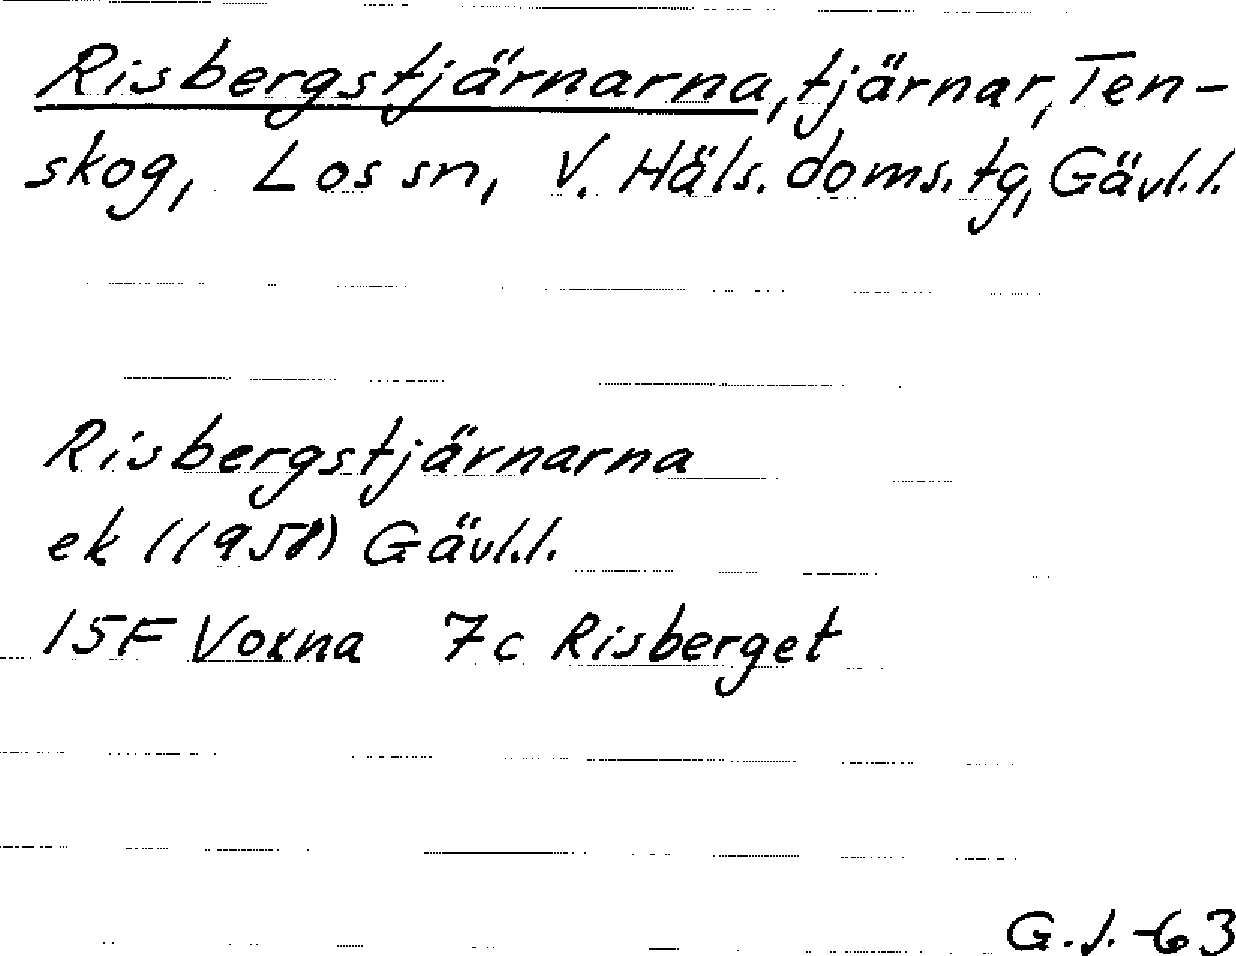 Risbergstjärnarna, tjärnar, Ten-
skog, Los sn, V. Häls. doms. tg, Gävl.l.
Risbergstjärnarna
ek (1958) Gävl.l.
15F Voxna 7c Risberget
G.J.-63